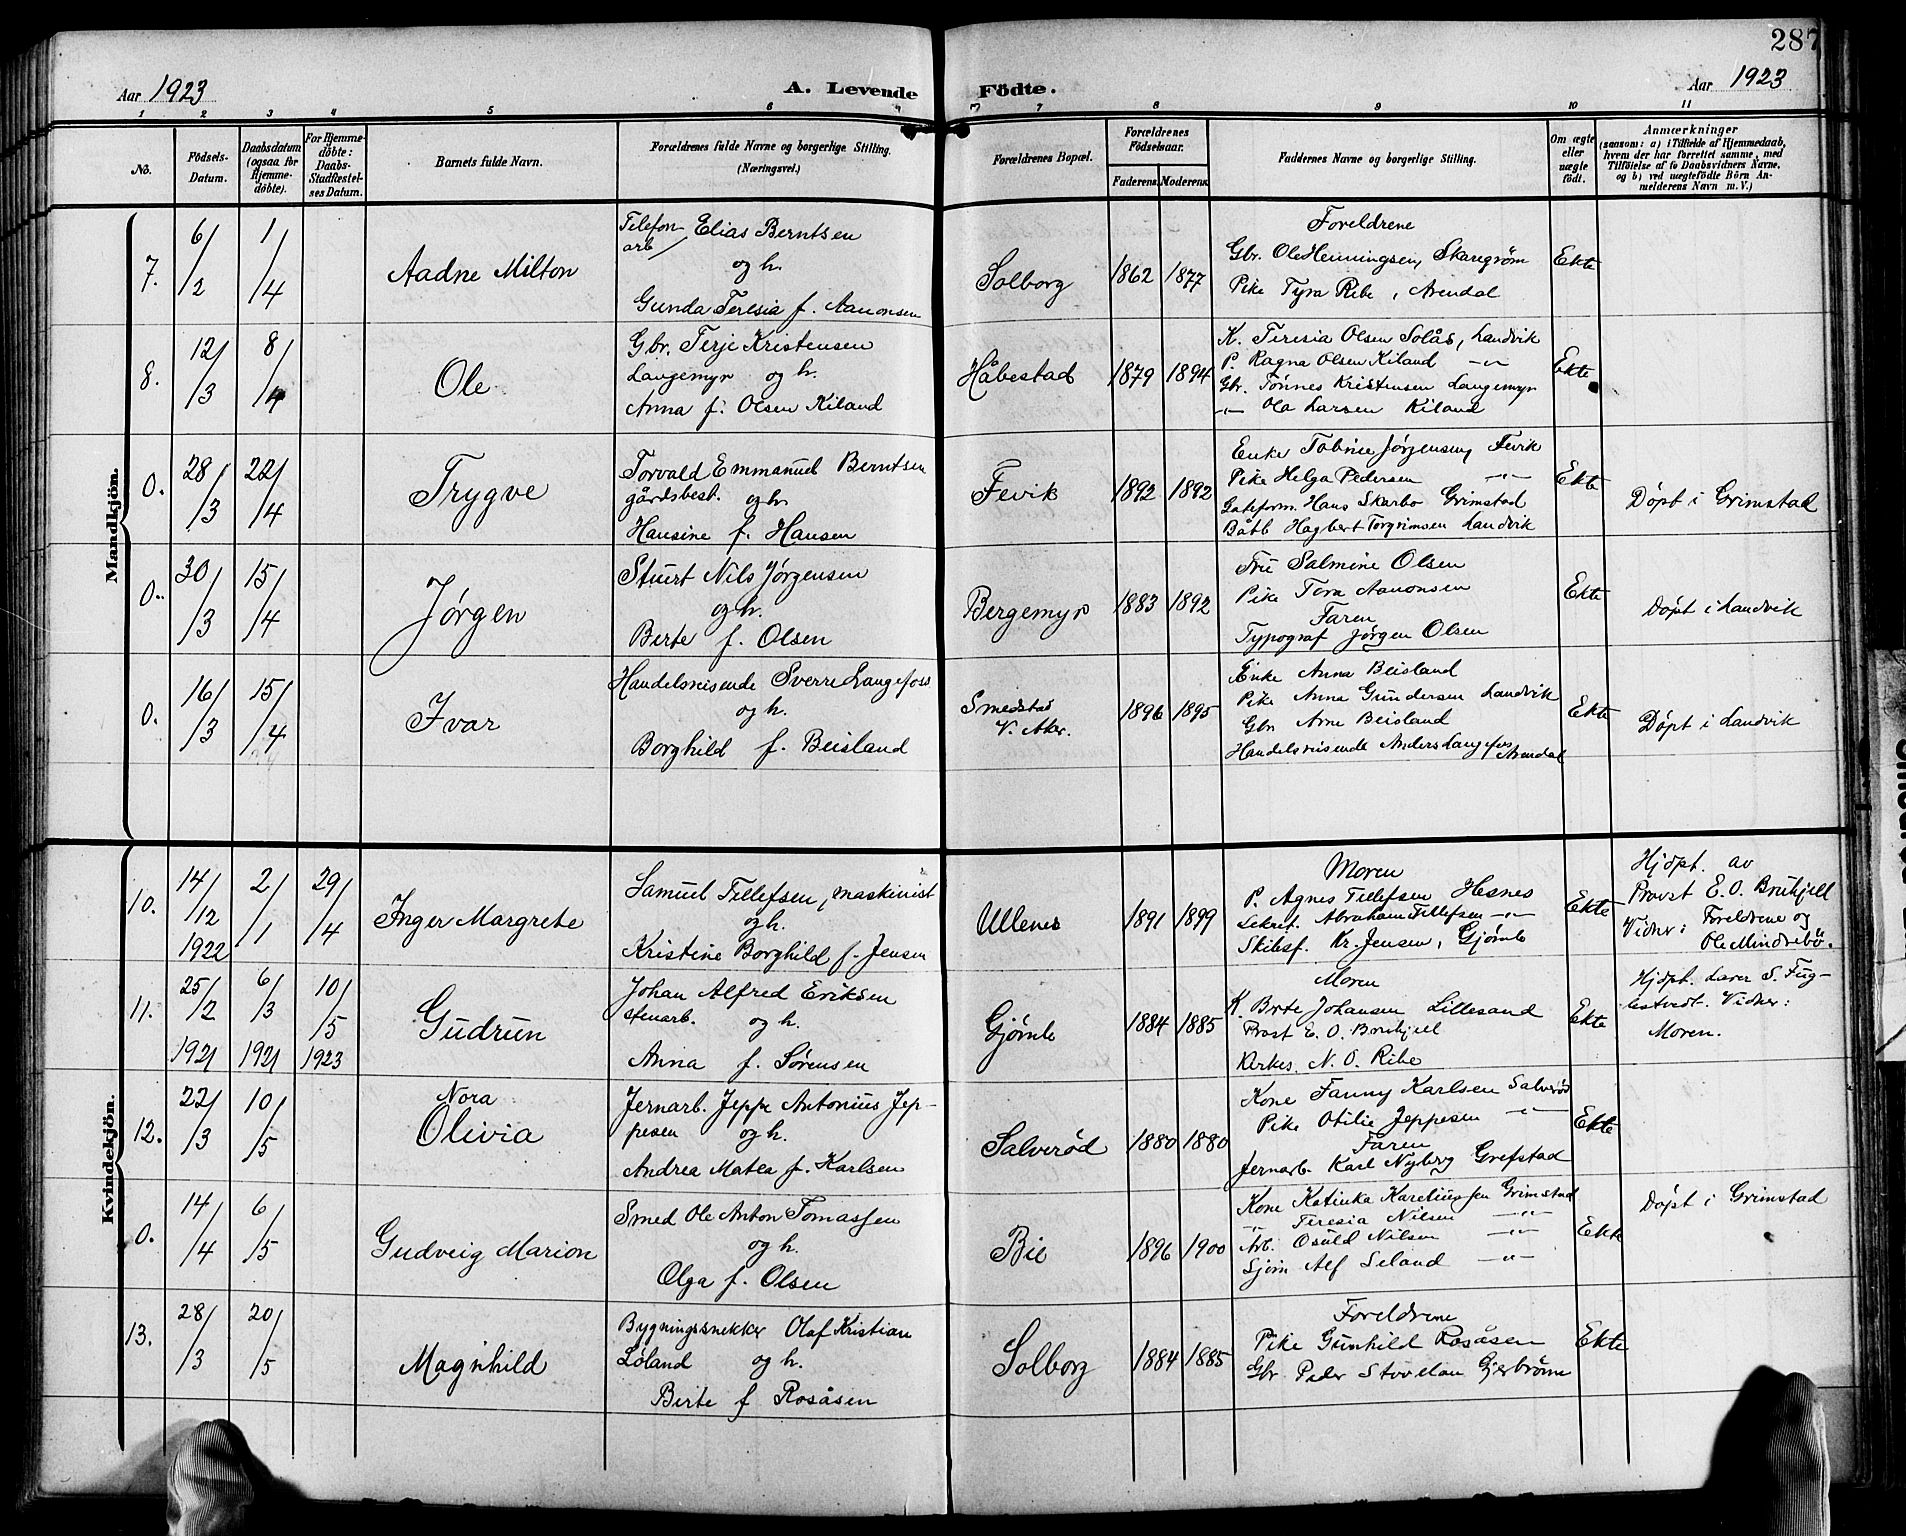 287
Aar 1923
A. Levende Födte.
Aar 1923
1 2 3 4 5 6 7 7 8 9 10 11
No.
Födsels-Datum.
Daabsdatum (ogsaa for Hjemme-döbte).
For Hjemme-döbte: Daabs-Stadfæstel-ses Datum.
Barnets fulde Navn.
Forældrenes fulde Navne og borgerlige Stilling.
(Næringsvei.)
Forældrenes Bopæl.
Forældrenes Födselsaar.
Faderens. Moderens.
Faddernes Navne og borgerlige Stilling.
Om ægte eller uægte födt.
Anmærkninger
(saasom: a) i Tilfælde af Hjemmedaab,
hvem der har forrettet samme, med
Tilföielse af to Daabsvidners Navne,
og b) ved uægtefödte Börn An-
melderens Navn m. V.)
Mandkjön.
7. 6/2 1/4
Aadne Milton
Telefon arb Elias Berntsen
og h.
Gunda Teresia f. Aanonsen
Solborg 1862 1877
Foreldrene
Gbr. Ole Henningsen, Skaregrøm
Pike Tyra Ribe, Arendal
Ekte
8. 12/3 8/4
Ole
Gbr. Terje Kristensen
Langemyr og h.
Anna f. Olsen Kiland
Håbestad 1879 1894
K. Teresia Olsen Solås, Landvik
P. Ragna Olsen Kiland -"-
Gbr. Tønnes Kristensen Langemyr
-"- Ola Larsen Kiland
Ekte
0. 28/3 22/4
Trygve
Torvald Emmanuel Berntsen
gårdsbest. og h.
Hansine f. Hansen
Fevik 1892 1892
Enke Tobine Jørgensen, Fevik
Pike Helga Pedersen -"-
Gateform. Hans Skarbo Grimstad
Båtb Hagbert Torgrimsen Landvik
Ekte
Døpt i Grimstad
0. 30/3 15/4
Jørgen
Stuert Nils Jørgensen
og h.
Birte f. Olsen
Bergemyr 1883 1892
Fru Salmine Olsen
Pike Tora Aanonsen
Faren
Typograf Jørgen Olsen
Ekte
Døpt i Landvik
0. 16/3 15/4
Ivar
Handelsreisende Sverre Langefoss
og h.
Borghild f. Beisland
Smedstad
V. Aker.
1896 1895
Enke Anna Beisland
Pike Anna Gundersen Landvik
Gbr Arne Beisland
Handelsreisende Anders Langefos Arendal
Ekte
Døpt i Landvik
Kvindekjön.
10. 14/12 1922 2/1 29/4
Inger Margrete
Samuel Tellefsen, maskinist
og h.
Kristine Borghild f. Jensen
Ullenes 1891 1899
Moren
P. Agnes Tellefsen Hesnes
Sekret. Abraham Tellefsen -"-
Skibsf. Kr. Jensen, Gjømle
Ekte
Hjdpt. av
Provst E. O. Bruhjell
Vidner: Foreldrene og
Ole Mindrebö.
11. 25/2 1921 6/3 1921 10/5 1923
Gudrun
Johan Alfred Eriksen
stenarb. og h.
Anna f. Sørensen
Gjømle 1884 1885
Moren
K. Birte Johansen Lillesand
Prost E. O. Bruhjell
Kirkes. N. O. Ribe
Ekte
Hjdpt. Lærer S. Fug-
lestvedt. Vidner:
Moren.
12. 22/3 10/5
Nora
Olivia
Jernarb. Jeppe Antonius Jep-
pesen og h.
Andrea Matea f. Karlsen
Salverød 1880 1880
Kone Fanny Karlsen Salverød
Pike Otilie Jeppesen -"-
Faren
Jernarb. Karl Nyberg Grefstad
Ekte
0. 14/4 6/5
Gudveig Marion
Smed Ole Anton Tomassen
og h.
Olga f. Olsen
Bie 1896 1900
Kone Katinka Kareliussen Grimstad
-"- Teresia Nilsen -"-
Arb. Osuld Nilsen -"-
Sjøm Alf Seland -"-
Ekte
Døpt i Grimstad
13. 28/3 20/5
Magnhild
Bygningssnekker Olaf Kristian
Løland og h.
Birte f Rosåsen
Solborg 1884 1885
Foreldrene
Pike Gunhild Rosåsen
Gbr Peder
Ekte